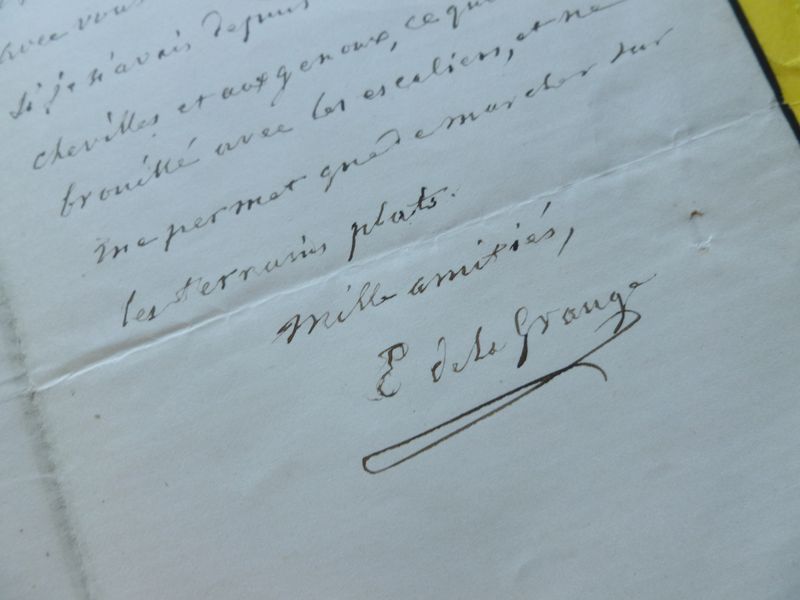 avec vous
si je n'avais depuis
chevilles et aux genoux, ce qui
brouillé avec les escaliers, et ne
me permet que de marcher sur
les terrains plats.
Mille amitiés,
E de la Grange